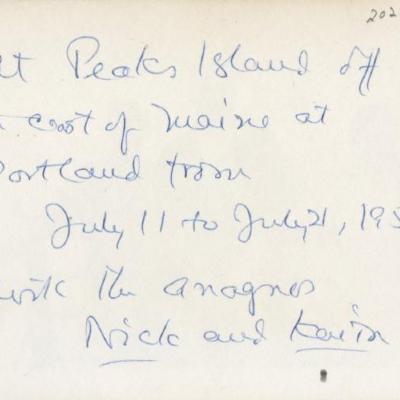 202
At Peaks Island off
coast of Maine at
Portland from
July 11 to July 21, 195
with the Anagnos
Nick and